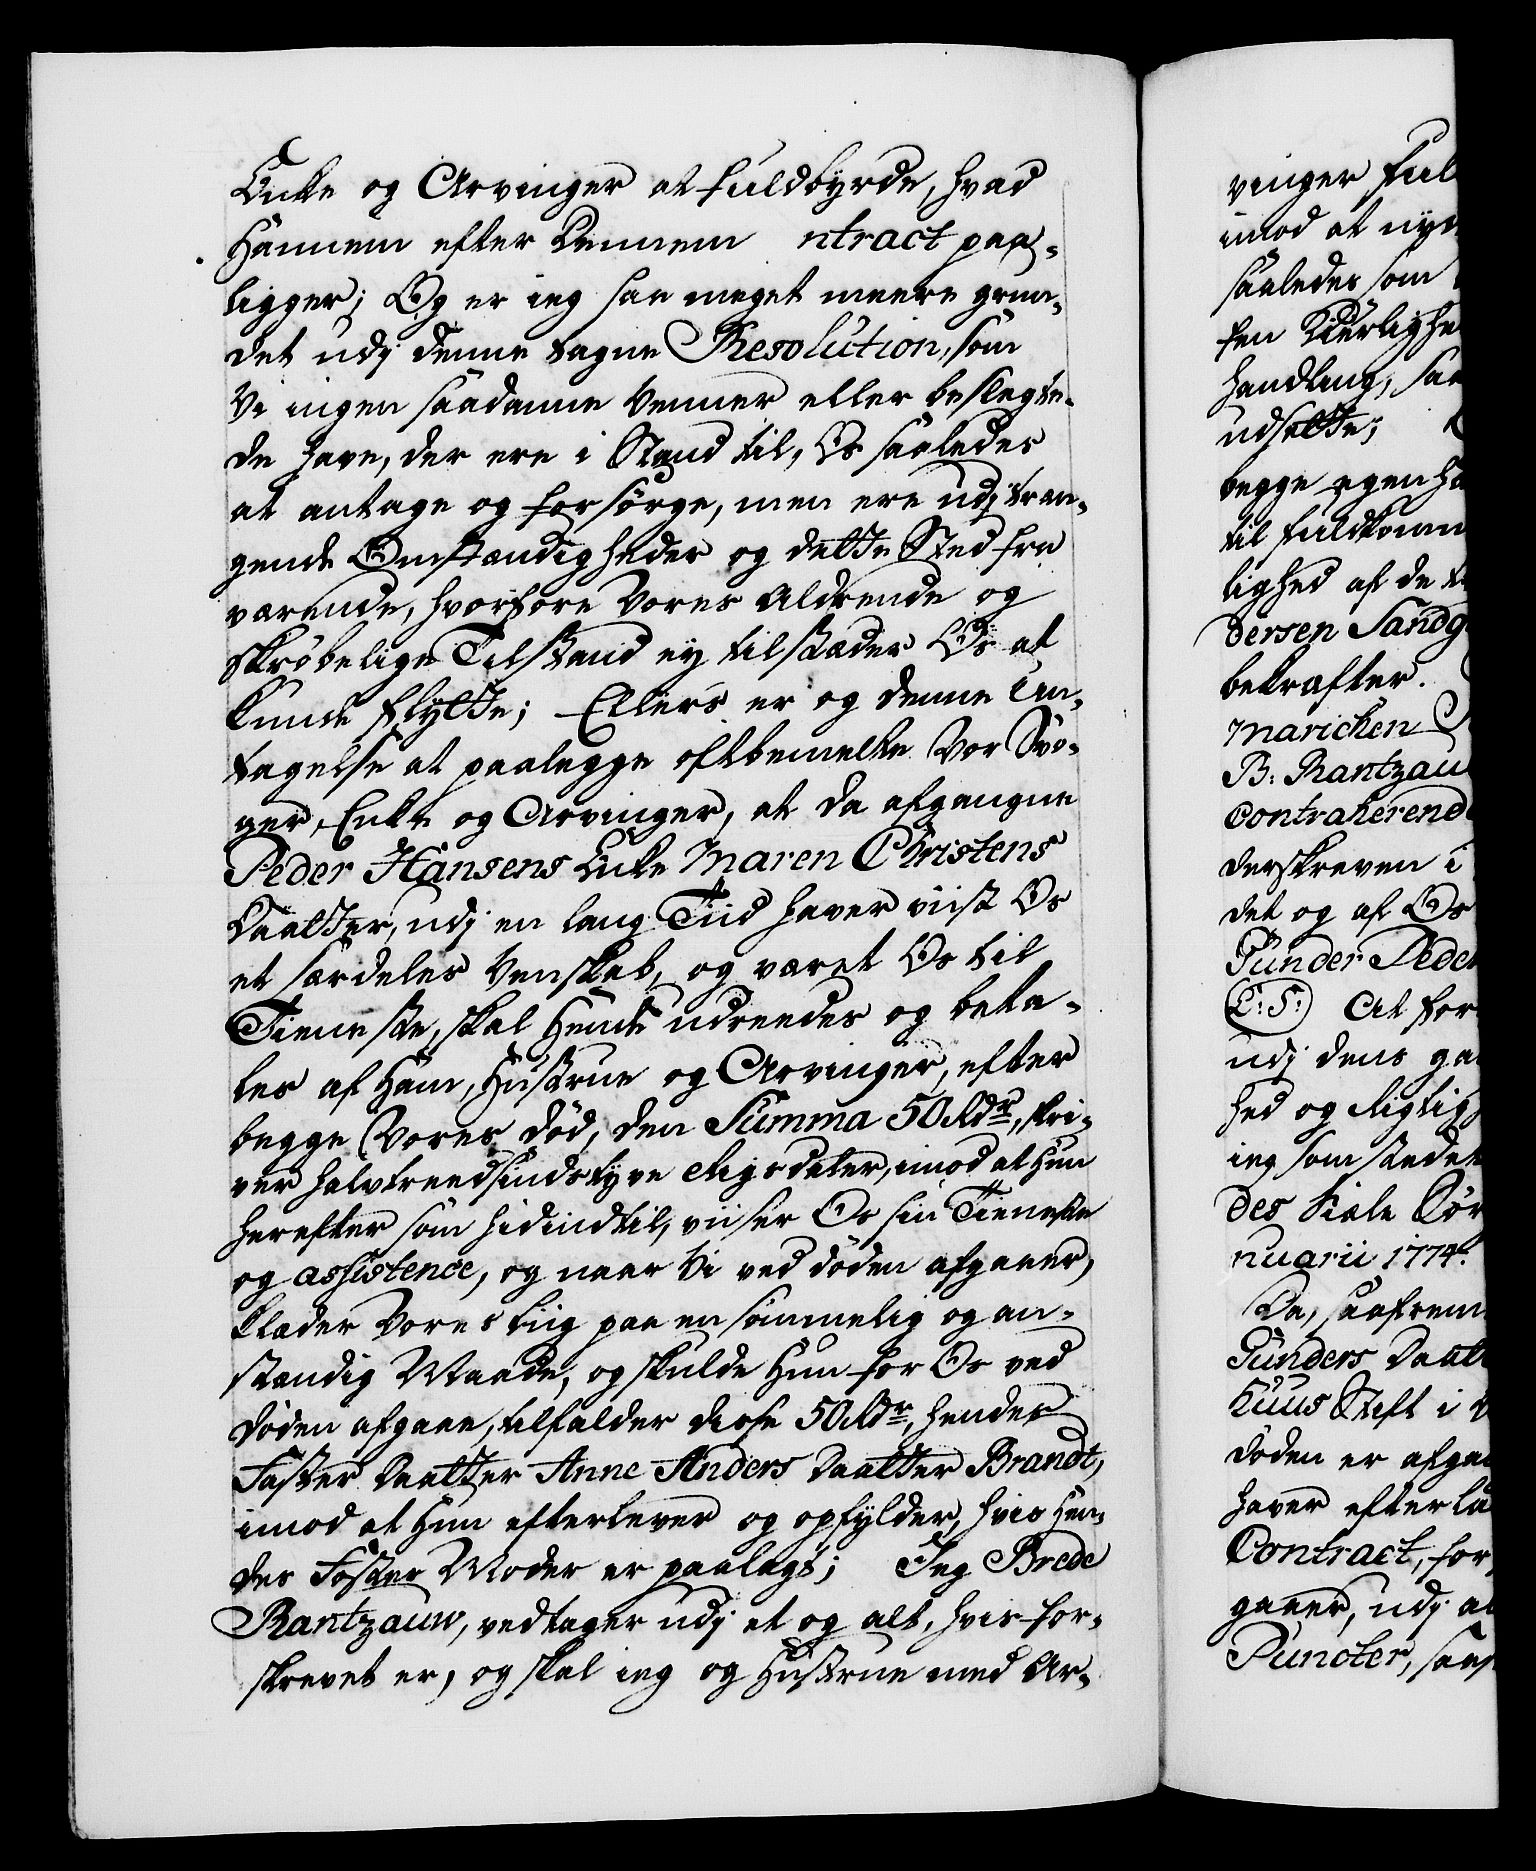 Encke og Arvinger at fuldbyrde, hvad
Hannem efter Dennem ntract paa-
ligger; Og er ieg saa meget meere grun-
det udj denne tagne Resolution, som
Vi ingen saadanne Venner eller beslegte-
de have, der ere i Stand til, Os saaledes
at antage og forsörge, men ere udj tran-
gende Omstændigheder og dette Sted fra
værende, hvorfore Vores Aldrende og
skröbelige Tilstand ey tilstæder Os at
kunde flytte; Ellers er og denne An-
tagelse at paalegge oftbemelte Vor Svo-
ger, Enke og Arvinger, at da afgangne
Peder Hansens Encke Maren Christens
Daatter, udj en lang Tiid haver viist Os
et særdeles Venskab, og været Os til
Tieneste, skal Hende udreedes og beta-
les af Ham, Hustrue og Arvinger, efter
begge Vores död, den Summa 50 Rdr, skri-
ver halvtreedsindstyve Rigsdaler, imod at Hun
herefter som hidindtil, viiser Os sin Tieneste
og assistence, og naar Vi ved döden afgaaer,
klæder Vores liig paa en sömmelig og an-
stændig Maade, og skulde Hun for Os ved
döden afgaae, tilfalder disse 50 Rdr, hendes
Faster Daatter Anne Anders Daatter Brandt,
imod at Hun efterlever og opfylder, hvis Hen-
des Foster Moder er paalagt; Jeg Brede
Rantzauw, vedtager udj et og alt, hvis for-
skrevet er, og skal ieg og Hustrue med Ar-
vinger ful
imod at nyd
saaledes som
sen Kierlighe
handling, saa
udsatte;
begge egenhæ
til fuldkomm
lighed af de t
dersen Sandg
bekrafter.
Marichen
B: Rantzau
Contraherend
derskreven i
det og af Os
Gunder Peder
L:S: At for
udj dens ga
hed og Rigtig
ieg som stedet
des
nuarii 1774.
Da, saafrem
Gunders Daatt
huus Stift i
döden er afga
haver efterla
Contract, for
gaaer, udj al
Puncter, saaf